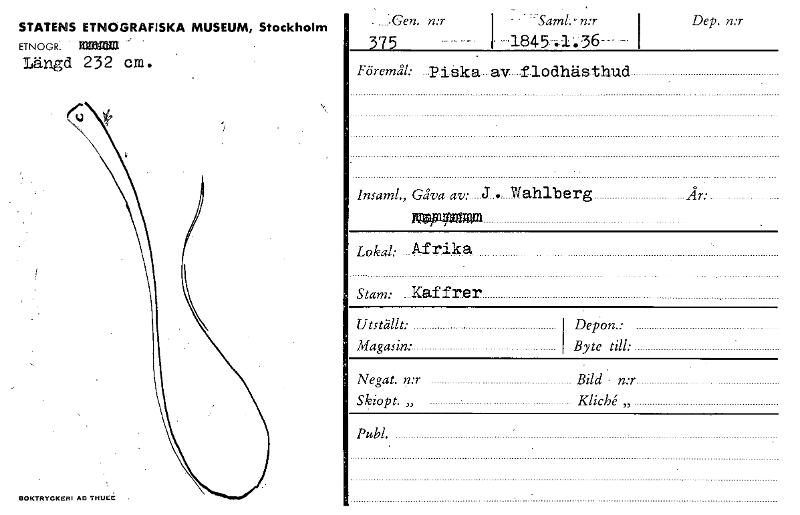 STATENS ETNOGRAFISKA MUSEUM, Stockholm
ETNOGR.
Längd 232 cm.
BOKTRYCKERI AB THULE
Gen. n:r Saml. n:r Dep. n:r
375 1845.1.36
Föremål: Piska av flodhästhud
Insaml., Gåva av: J. Wahlberg År:
Lokal: Afrika
Stam: Kaffrer
Utställt: Depon.:
Magasin: Byte till:
Negat. n:r Bild n:r
Skiopt. „ Kliché „
Publ.